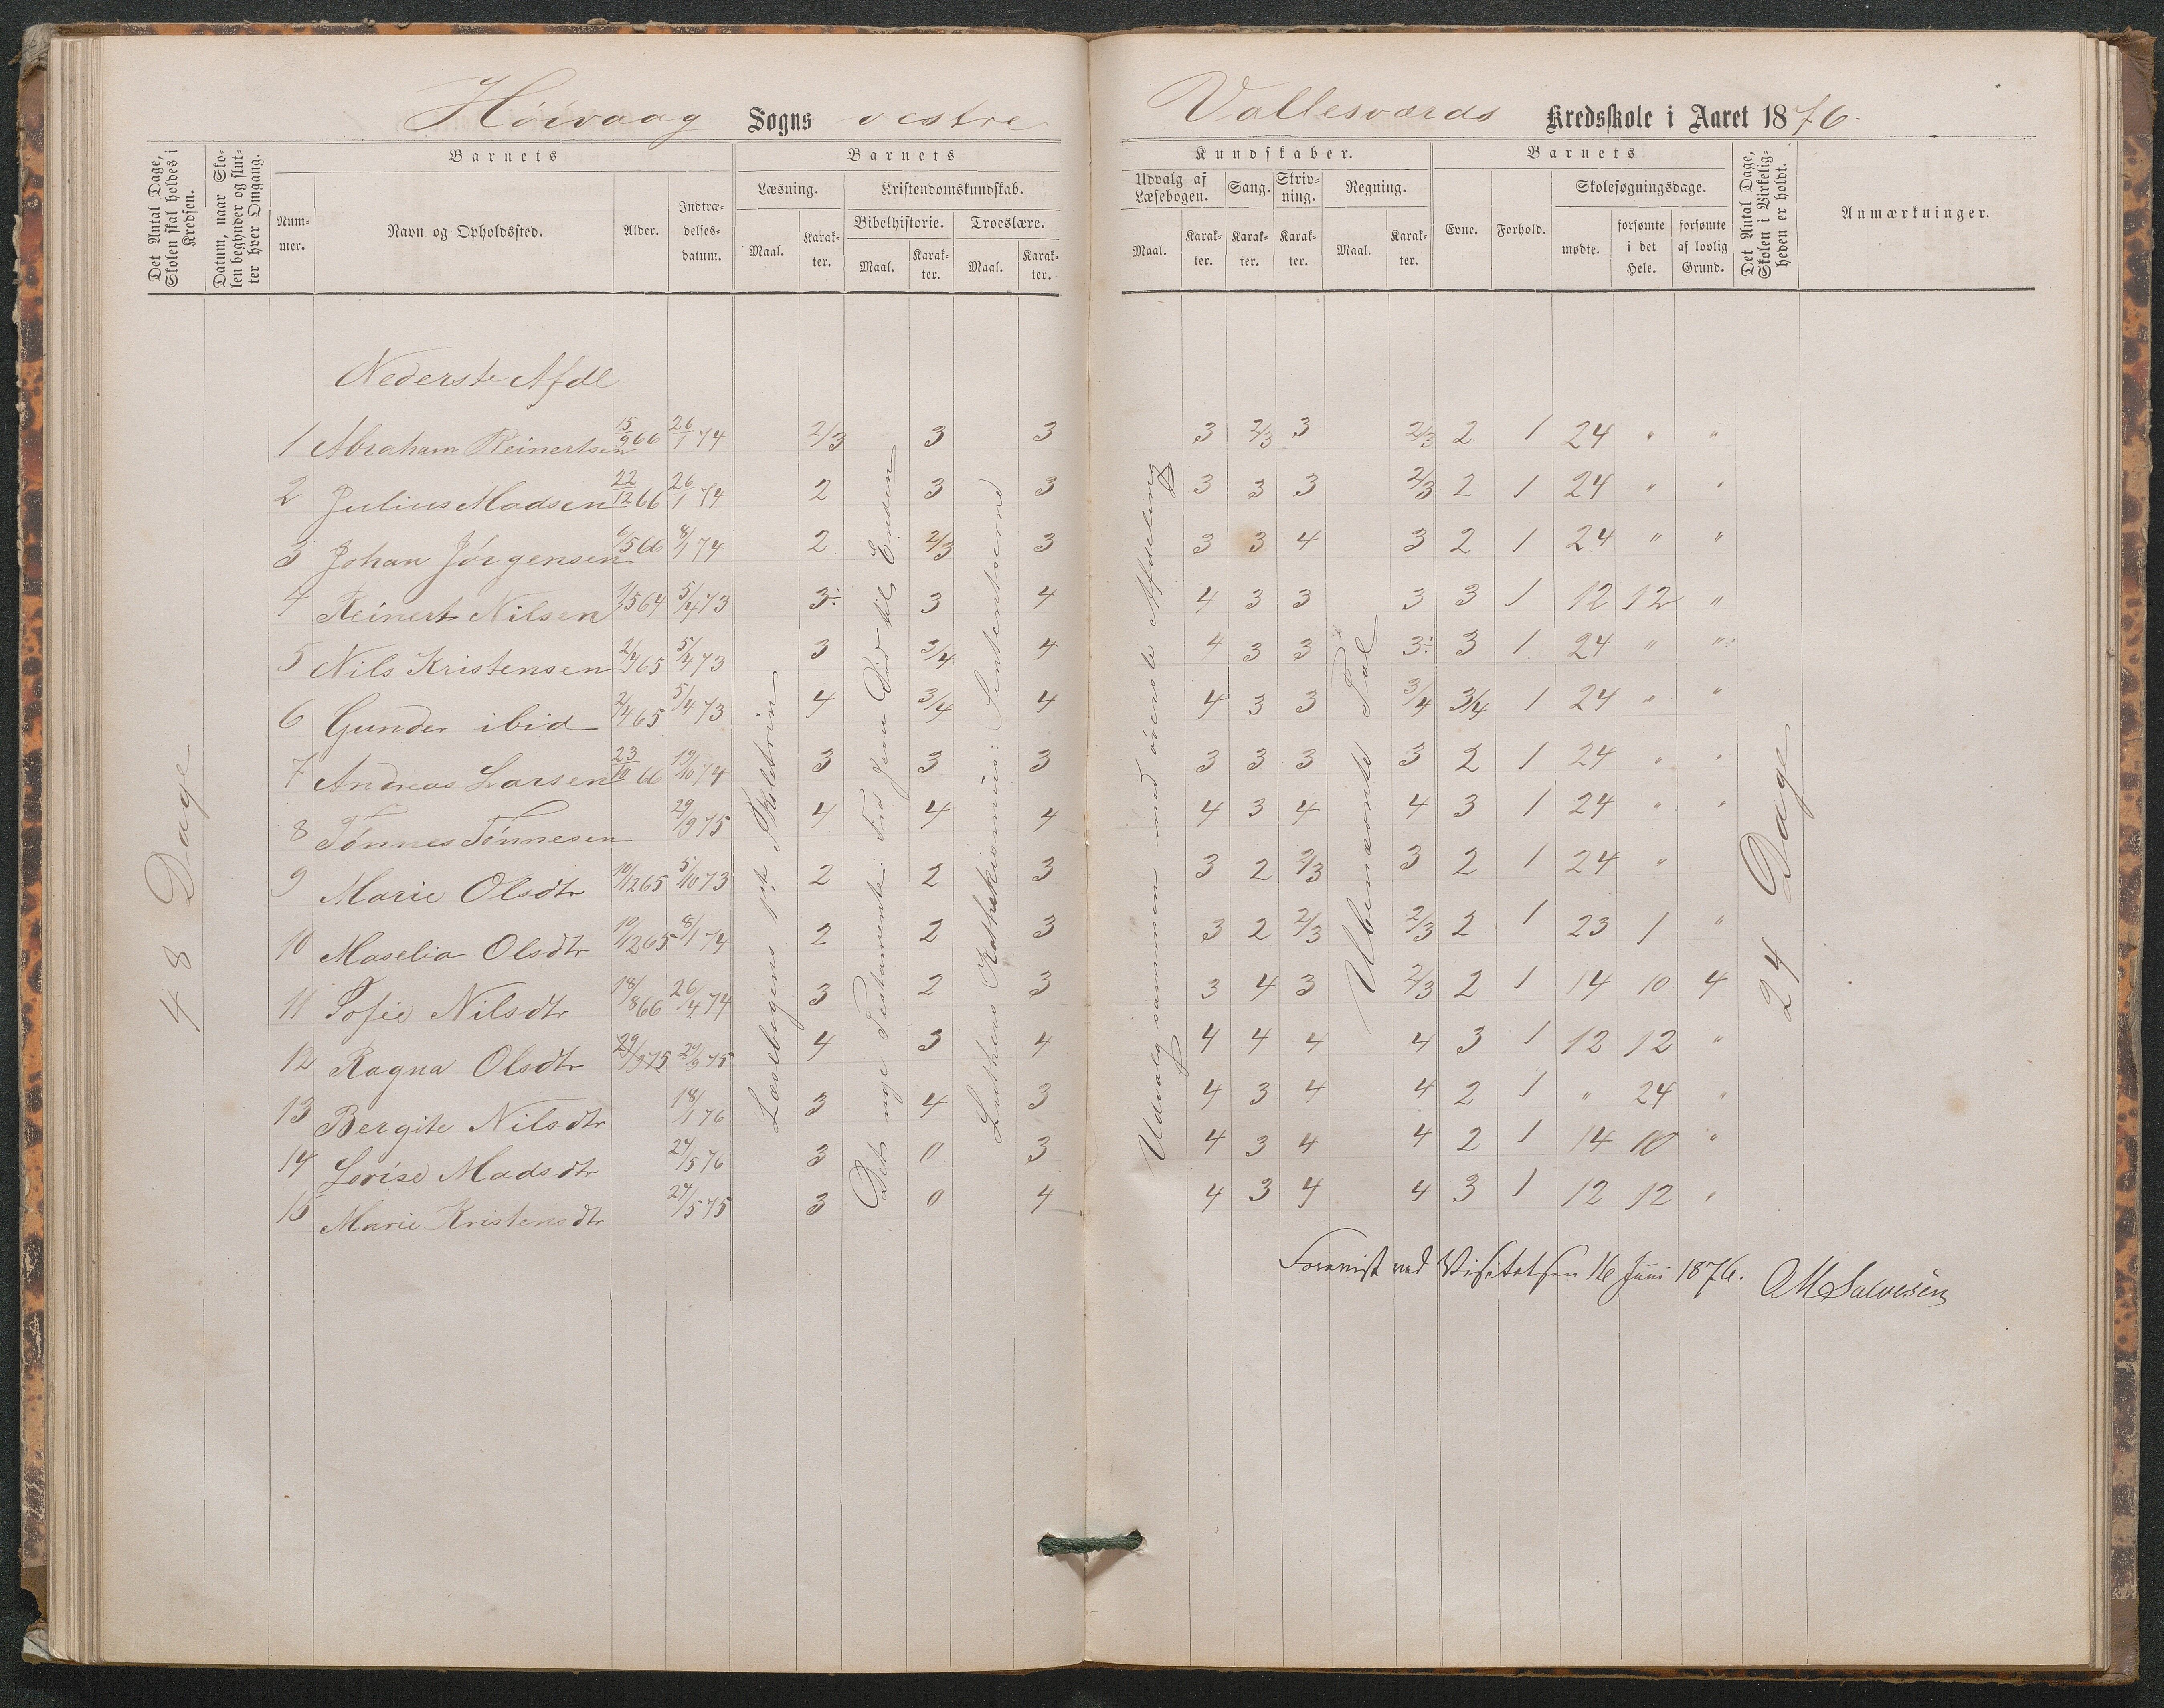 Høivaag Sogns vestre Vallesværds Kredsskole i Aaret 1876.
Det Antal Dage, Skolen skal holdes i Kredsen.
Datum, naar Skolen begynder og slutter hver Omgang.
Barnets
Nummer.
Navn og Opholdssted.
Alder.
Indtrædelsesdatum.
Barnets
Læsning.
Maal.
Karakter.
Kristendomskundskab.
Bibelhistorie.
Maal.
Karakter.
Troeslære.
Maal.
Karakter.
Kundskaber.
Udvalg af Læsebogen.
Maal.
Karakter.
Sang.
Karakter.
Skrivning.
Karakter.
Regning.
Maal.
Karakter.
Barnets
Evne.
Forhold.
Skolesøgningsdage.
mødte.
forsømte i det Hele.
forsømte af lovlig Grund.
Det Antal Dage, Skolen i Virkeligheden er holdt.
Anmærkninger.
48 Dage
Nederste Afdl
Læsebogens 1ste Skoletrin
Det nye Testamente: Fra Jesu Død til Enden
Luthers Katekismus: Sententserne
Udvalg sammen med øverste Afdeling
Ubenævnte Tal
24 Dage
1 Abraham Reinertsen 15/9 66 26/1 74 2/3 3 3 3 2/3 3 2/3 2 1 24 " "
2 Julius Madsen 22/12 66 26/1 74 2 3 3 3 3 3 2/3 2 1 24 " "
3 Johan Jørgensen 6/5 66 8/1 74 2 2/3 3 3 3 4 3 2 1 24 " "
4 Reinert Nilsen 1/5 64 5/4 73 3÷ 3 4 4 3 3 3 3 1 12 12 "
5 Nils Kristensen 2/4 65 5/4 73 3 3/4 4 4 3 3 3÷ 3 1 24 " "
6 Gunder ibid 2/4 65 5/4 73 4 3/4 4 4 3 3 3/4 3/4 1 24 " "
7 Andreas Larsen 23/10 66 19/10 74 3 3 3 3 3 3 3 2 1 24 " "
8 Tønnes Tønnesen 29/9 75 4 4 4 4 3 4 4 3 1 24 " "
9 Marie Olsdtr 10/12 65 5/10 73 2 2 3 3 2 2/3 3 2 1 24 "
10 Maselia Olsdtr 10/12 65 8/1 74 2 2 3 3 2 2/3 2/3 2 1 23 1 "
11 Sofie Nilsdtr 18/8 66 26/4 74 3 2 3 3 4 3 2/3 2 1 14 10 4
12 Ragna Olsdtr 29/9 75 29/9 75 4 3 4 4 4 4 4 3 1 12 12 "
13 Bergite Nilsdtr 18/1 76 3 4 3 4 3 4 4 2 1 " 24 "
14 Lovise Madsdtr 24/5 76 3 0 3 4 3 4 4 2 1 14 10 "
15 Marie Kristensdtr 24/5 75 3 0 4 4 3 4 4 3 1 12 12 "
Forevist ved Visitatsen 16 Juni 1876. OMSalvesen